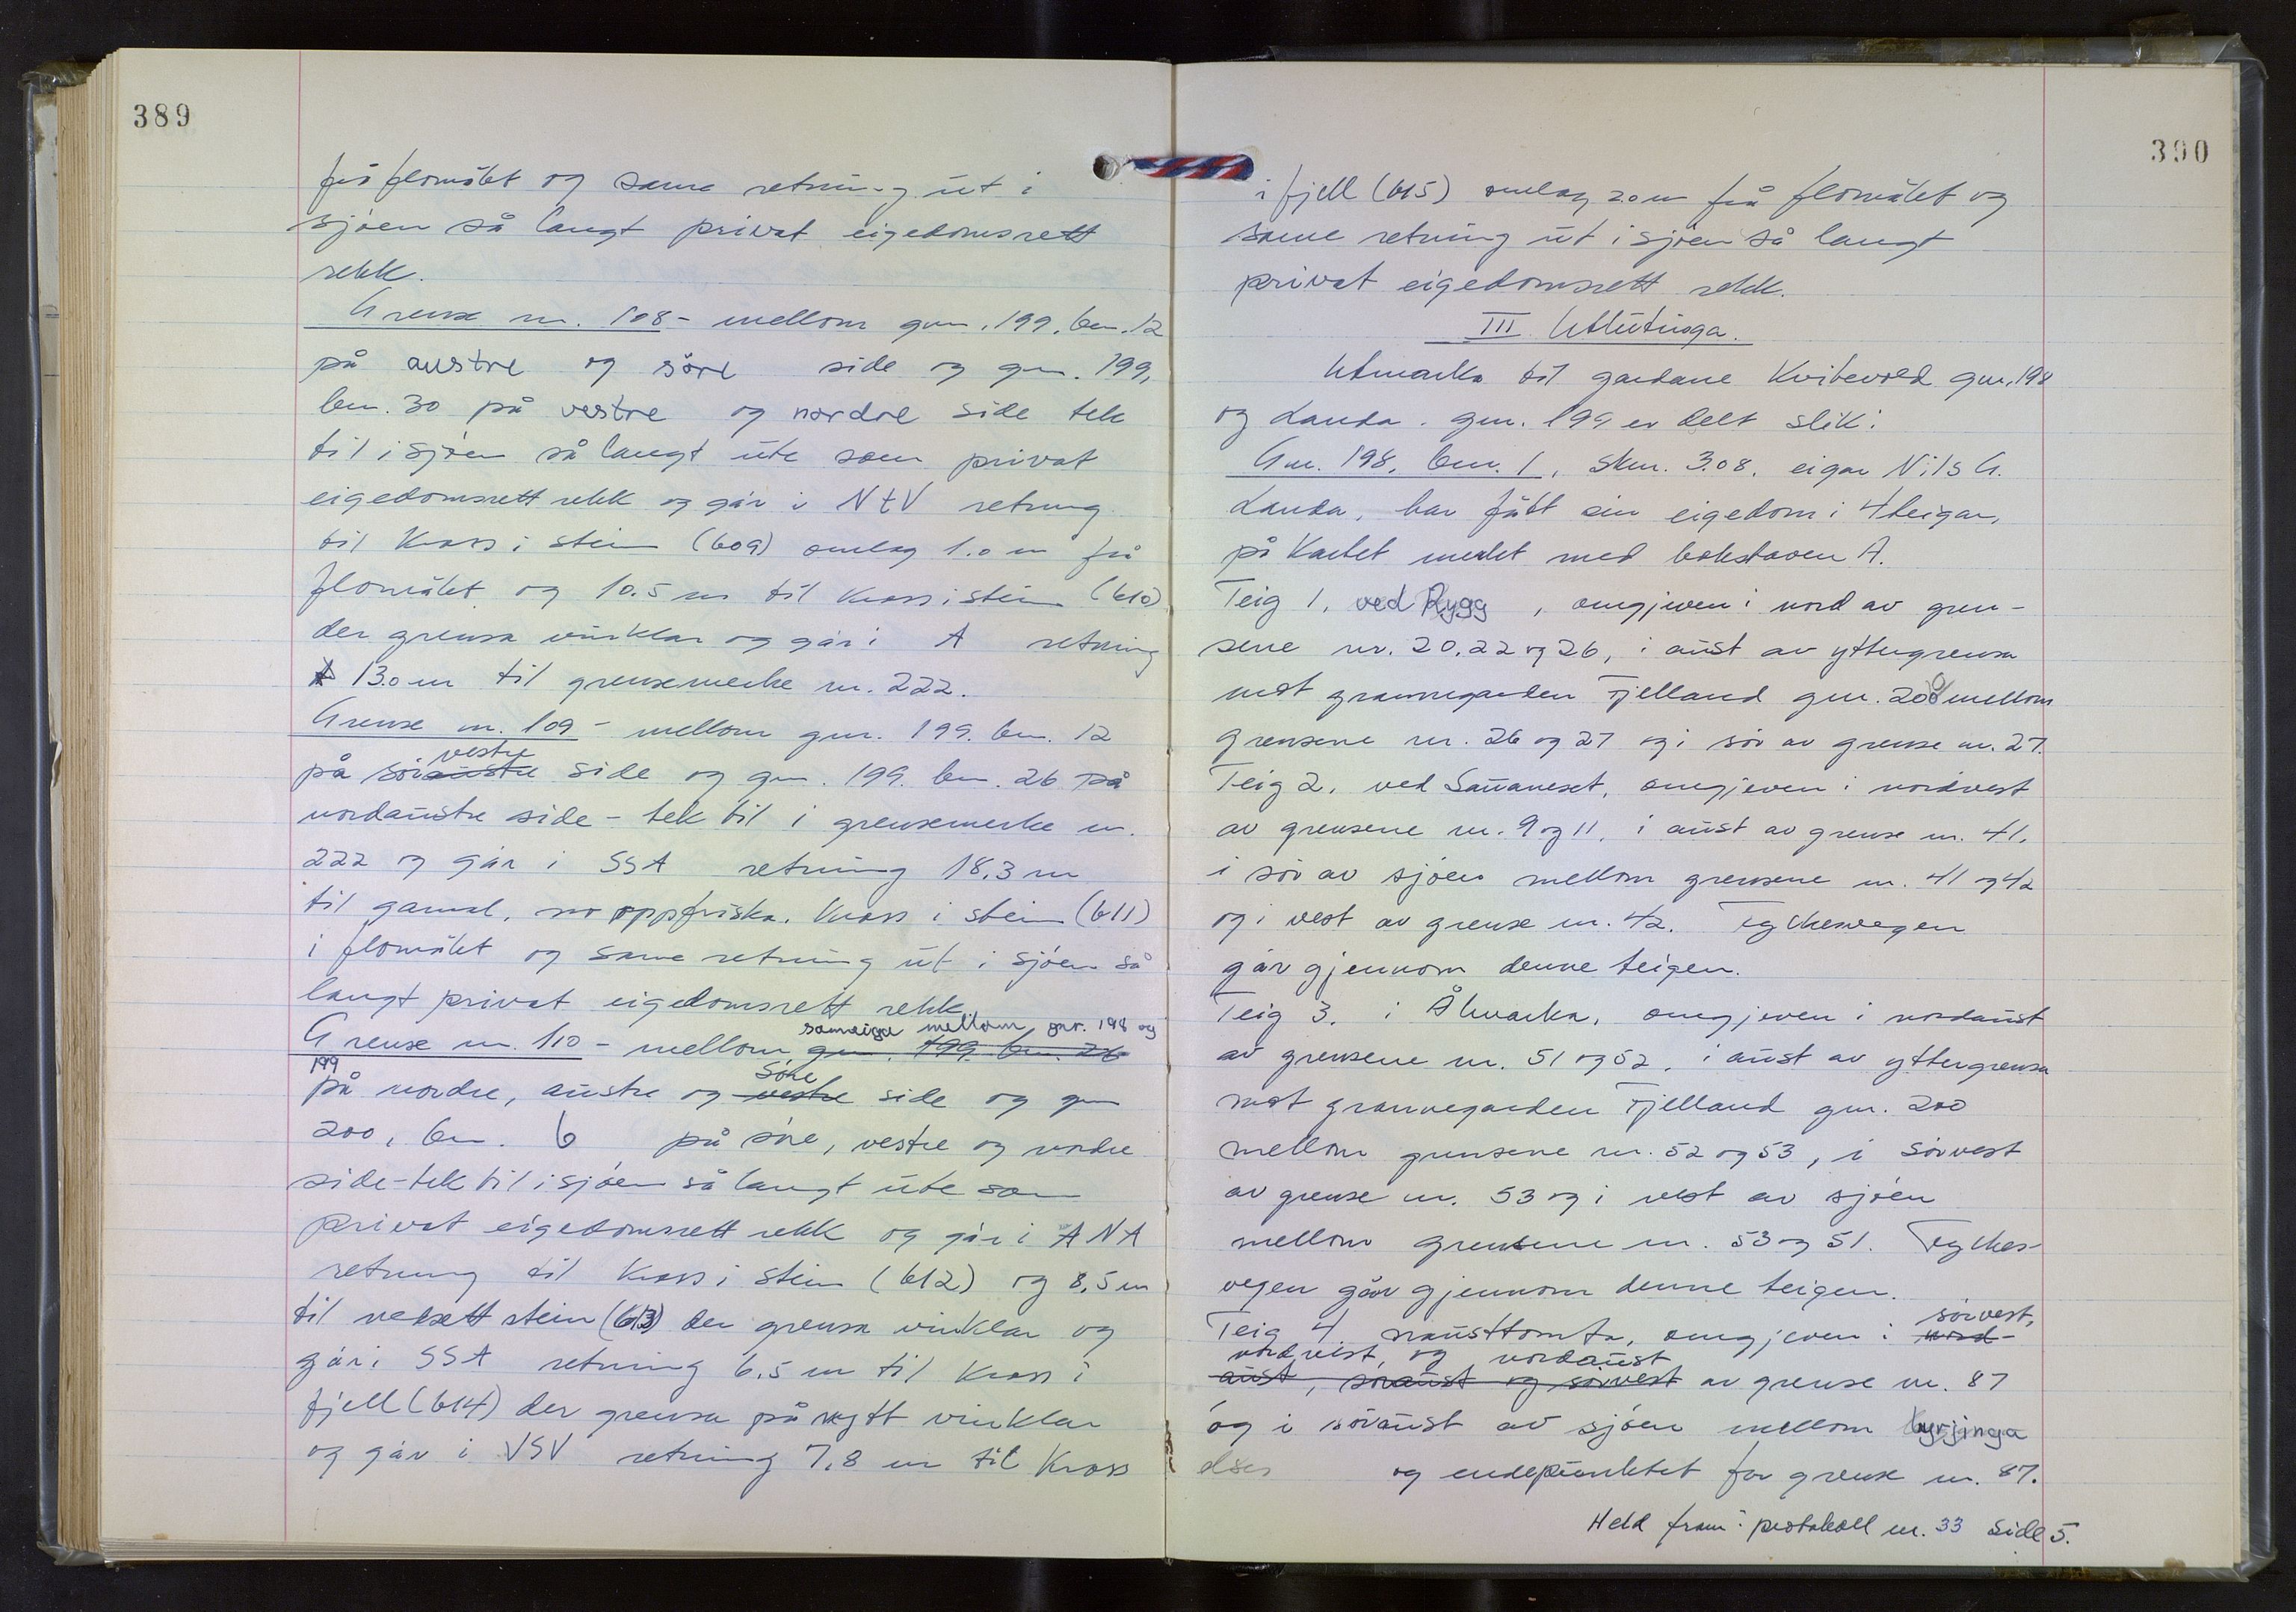 389
frå flomålet og same retning ut i
sjøen så langt privat eigedomsrett
rekk.
Grense nr. 108 - mellom gnr. 199, bnr. 12
på austre og søre side og gnr. 199,
bnr. 30 på vestre og nordre side tek
til i sjøen så langt ute som privat
eigedomsrett rekk og går i NtV retning
til kross i stein (609) omlag 1.0 m frå
flomålet og 10.5 m til kross i stein (610)
der grensa vinklar og går i A retning
13.0 m til grensemerke nr. 222.
Grense nr. 109 - mellom gnr. 199. bnr. 12
vestre
på søraustre side og gnr. 199. bnr. 26 på
nordaustre side - tek til i grensemerke nr.
222 og går i SSA retning 18.3 m
til gamal, no oppfriska. kross i stein (611)
i flomålet og same retning ut i sjøen så
langt privat eigedomsrett rekk.
sameige mellom gnr. 198 og
Grense nr. 110 - mellom gnr. 199. bnr. 26
199 søre
på nordre, austre og vestre side og gnr
200, bnr. 6 på søre, vestre og nordre
side - tek til i sjøen så langt ute som
privat eigedomsrett rekk og går i ANA
retning til kross i stein (612) og 8,5 m
til nedsett stein (613) der grensa vinklar og
går i SSA retning 6.5 m til kross i
fjell (614) der grensa på nytt vinklar
og går i VSV retning 7,8 m til kross
390
i fjell (615) omlag 2.0 m frå flomålet og
same retning ut i sjøen så langt
privat eigedomsrett rekk.
III. Utlutinga.
Utmarka til gardane Kvitevold gnr. 198
og Landa. gnr. 199 er delt slik:
Gnr. 198, bnr. 1, skm. 3.08. eigar Nils G.
Landa, har fått sin eigedom i 4 teigar,
på kartet merket med bokstaven A.
Teig 1. ved Rygg, omgjeven i nord av gren-
sene nr. 20.22 og 26, i aust av yttergrensa
mot grannegarden Fjelland gnr. 200 mellom
grensene nr. 26 og 27 og i sør av grense nr. 27.
Teig 2. ved Sauaneset, omgjeven i nordvest
av grensene nr. 9 og 11, i aust av grense nr. 41,
i sør av sjøen mellom grensene nr. 41 og 42
og i vest av grense nr. 42. Fylkesvegen
går gjennom denne teigen.
Teig 3. i Åkmarka, omgjeven i nordaust
av grensene nr. 51 og 52, i aust av yttergrensa
mot grannegarden Fjelland gnr. 200
mellom grensene nr. 52 og 53, i sørvest
av grense nr. 53 og i vest av sjøen
mellom grensene nr. 53 og 51. Fylkes-
vegen går gjennom denne teigen.
sørvest,
Teig 4. nausttomta, omgjeven i nord-
nordvest, og nordaust
aust, søraust og sørvest av grense nr. 87
og i søraust av sjøen mellom byrjinga
og endepunktet for grense nr. 87.
Held fram i protokoll nr. 33 side 5.